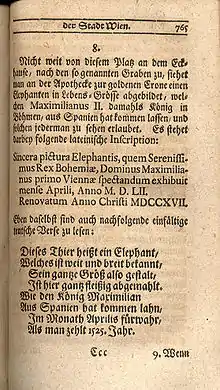 der Stadt Wien. 765
8.
Nicht weit von diesem Platz an dem Eck-
hause, nach den so genannten Graben zu, siehet
man an der Apothecke zur goldenen Crone einen
Elephanten in Lebens-Grösse abgebildet, wel-
chen Maximilianus II. damahls König in
Böhmen, aus Spanien hat kommen lassen, und
solchen jederman zu sehen erlaubet. Es stehet
darbey folgende lateinische Inscription:
Sincera pictura Elephantis, quem Serenissi-
mus Rex Bohemiæ, Dominus Maximilia-
nus primo Viennæ spectandum exhibuit
mense Aprili, Anno M. D. LII.
Renovatum Anno Christi MDCCXVII.
Eben daselbst sind auch nachfolgende einfältige
teutsche Verse zu lesen:
Dieses Thier heißt ein Elephant,
Welches ist weit und breit bekannt,
Sein gantze Größ also gestalt,
Ist hier gantz fleißig abgemahlt.
Wie den König Maximilian
Aus Spanien hat kommen lahn,
Im Monath Aprilis fürwahr,
Als man zehlt 1525. Jahr.
Ccc 9. Wenn